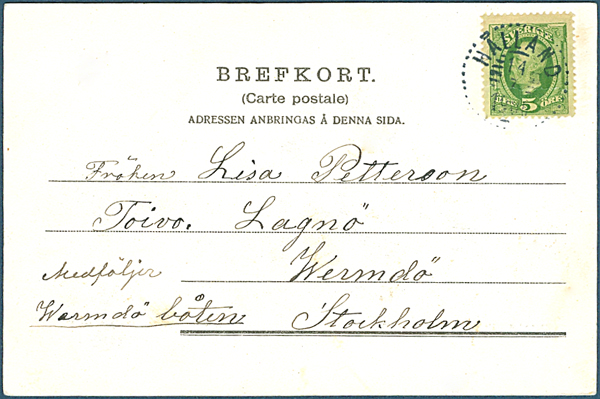 BREFKORT.
(Carte postale)
ADRESSEN ANBRINGAS Å DENNA SIDA.
SVERIGE
HÅLLAND
5 ÖRE
Fröken Lisa Petterson
Toivo. Lagnö
Medföljer Wermdö
Wermdö båten Stockholm